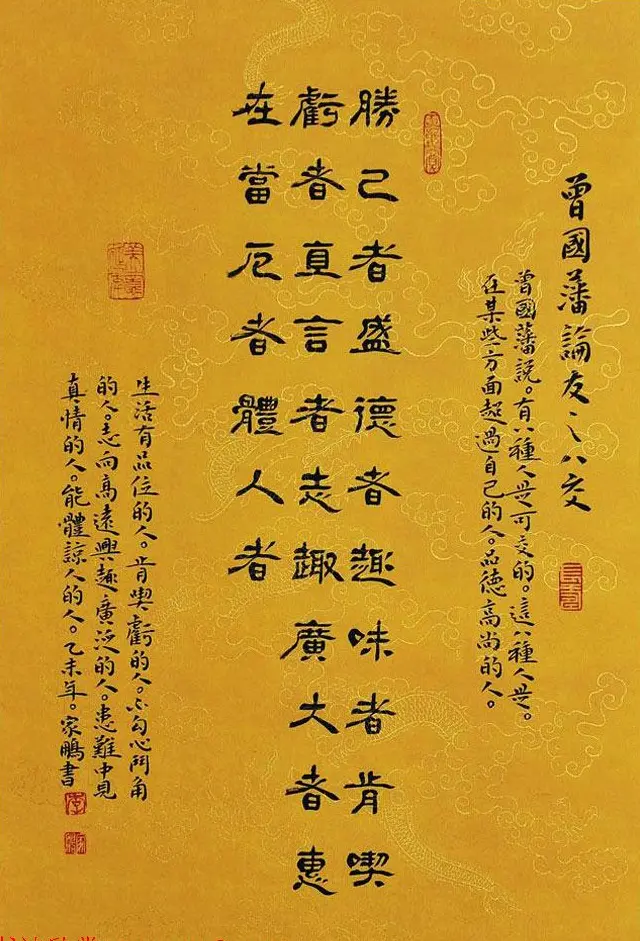 曾國藩論友之八交
曾國藩說。有八種人是可交的。這八種人是。
在某些方面超過自己的人。品德高尚的人。
勝己者盛德者趣味者肯喫
虧者直言者志趣廣大者惠
在當厄者體人者
生活有品位的人。肯喫虧的人。不勾心鬥角
的人。志向高遠興趣廣泛的人。患難中見
真情的人。能體諒人的人。乙未年。家鵬書